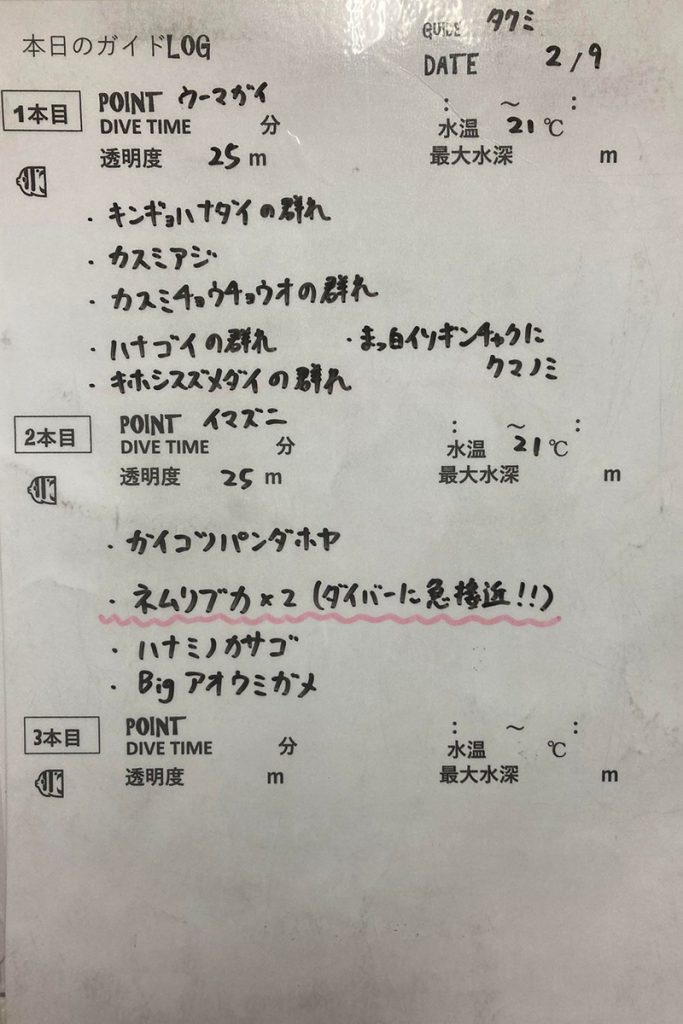 GUIDE タクミ
本日のガイドLOG
DATE 2/9
1本目 POINT ウーマガイ : ～ :
DIVE TIME 分 水温 21℃
透明度 25 m 最大水深 m
・キンギョハナダイの群れ
・カスミアジ
・カスミチョウチョウオの群れ
・ハナゴイの群れ ・まっ白イソギンチャクに
クマノミ
・キホシスズメダイの群れ
2本目 POINT イマズニ : ～ :
DIVE TIME 分 水温 21℃
透明度 25 m 最大水深 m
・ガイコツパンダホヤ
・ネムリブカ×2 (ダイバーに急接近!!)
・ハナミノカサゴ
・Big アオウミガメ
3本目 POINT : ～ :
DIVE TIME 分 水温 ℃
透明度 m 最大水深 m